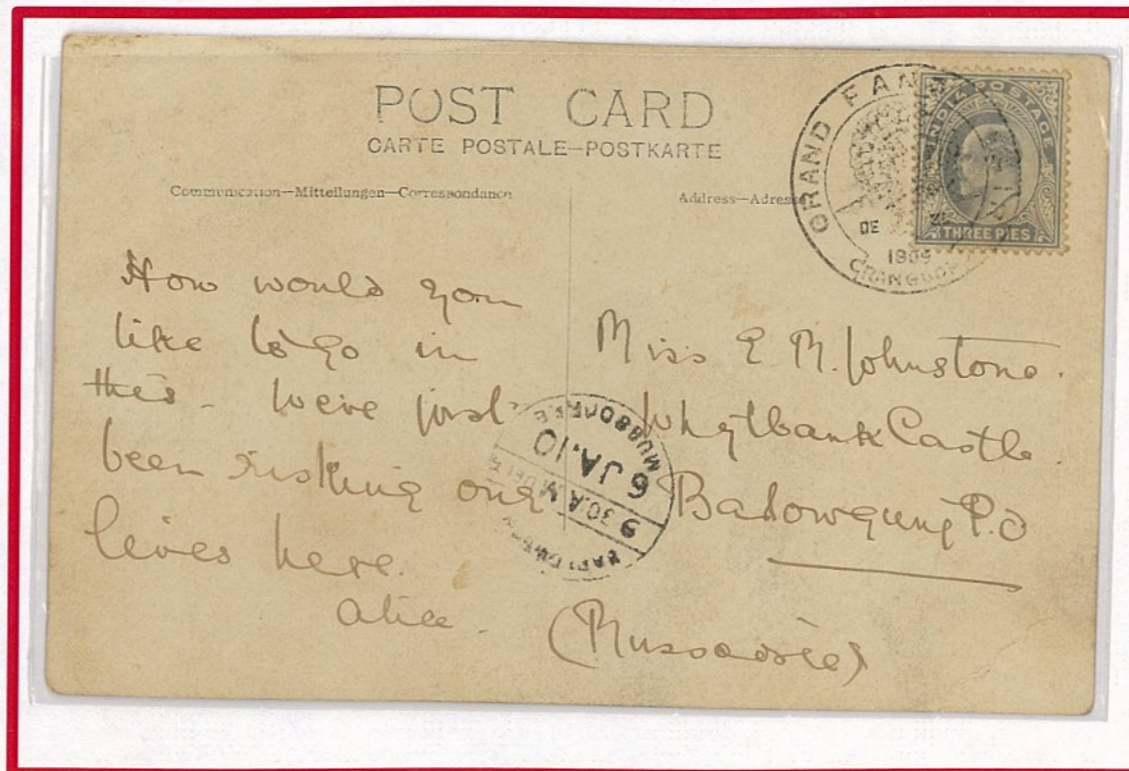 POST CARD
CARTE POSTALE—POSTKARTE
Communication—Mitteilungen—Correspondance
Address—Adresse
GRAND FAN
DE
1909
INDIA POSTAGE
THREE PIES
How would you
like to go in
this. We've just
been risking our
lives here.
Alice.
Miss E. M. Johnstone.
Whytbank Castle.
Barlowgunj P.O
(Mussoorie)
MUSSOORIE
6 JA. 10
9 30 A.M